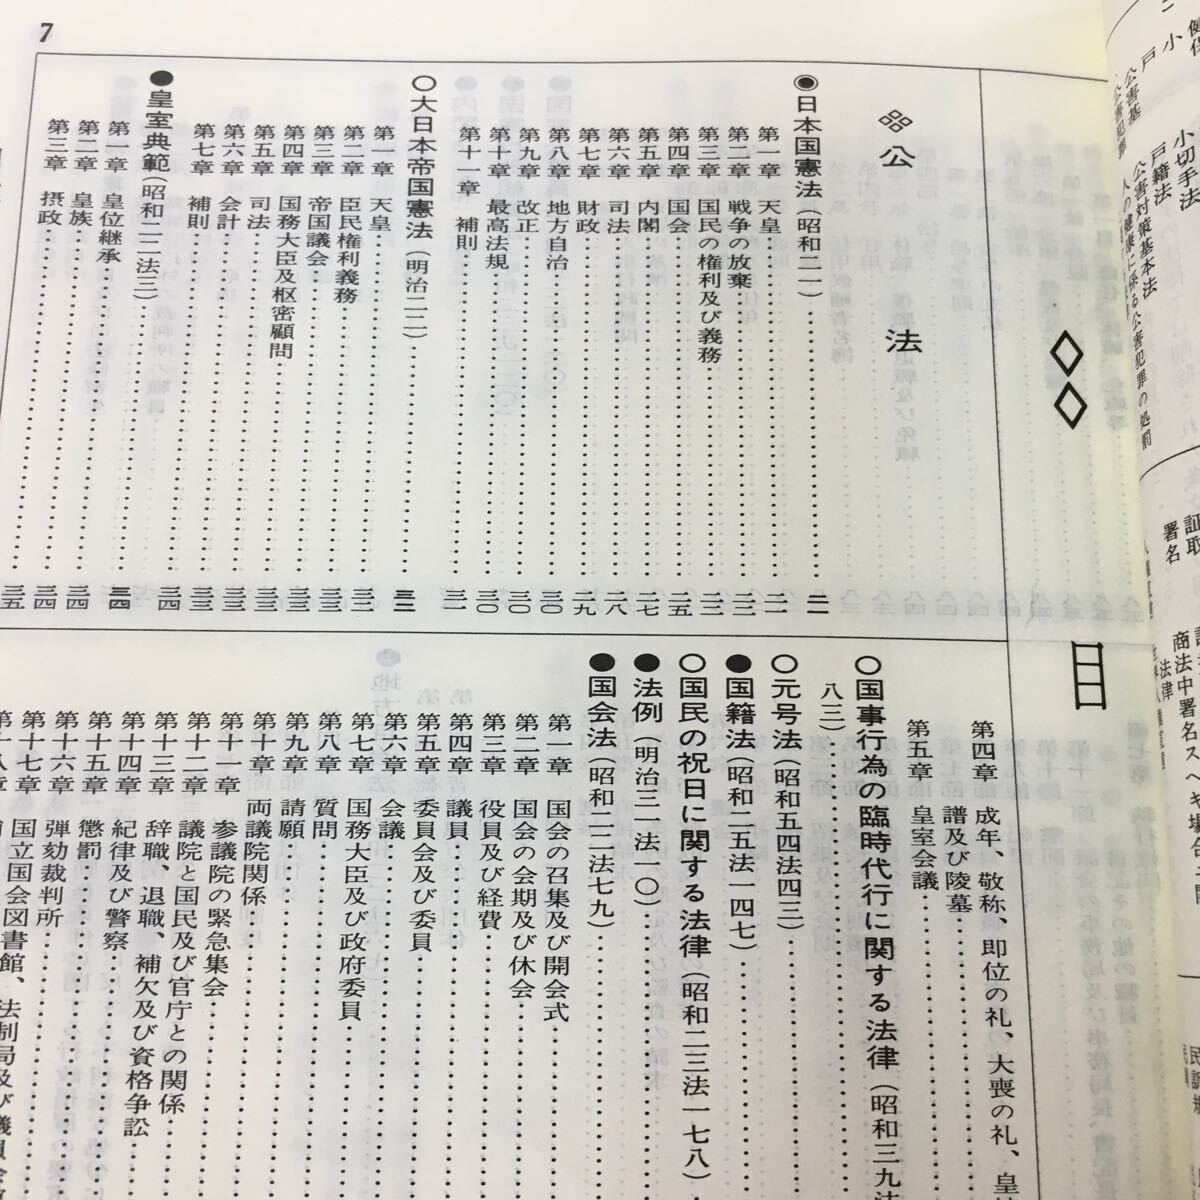 7
公法
日本国憲法（昭和二一）
第一章 天皇
第二章 戦争の放棄
第三章 国民の権利及び義務
第四章 国会
第五章 内閣
第六章 司法
第七章 財政
第八章 地方自治
第九章 改正
第十章 最高法規
第十一章 補則
大日本帝国憲法（明治二二）
第一章 天皇
第二章 臣民権利義務
第三章 帝国議会
第四章 国務大臣及枢密顧問
第五章 司法
第六章 会計
第七章 補則
皇室典範（昭和二二法三）
第一章 皇位継承
第二章 皇族
第三章 摂政
第四章 成年、敬称、即位の礼、大喪の礼、皇
譜及び陵墓
第五章 皇室会議
国事行為の臨時代行に関する法律（昭和三九法
八三）
元号法（昭和五四法四三）
国籍法（昭和二五法一四七）
国民の祝日に関する法律（昭和二三法一七八）
法例（明治三一法一〇）
国会法（昭和二二法七九）
第一章 国会の召集及び開会式
第二章 国会の会期及び休会
第三章 役員及び経費
第四章 議員
第五章 委員会及び委員
第六章 会議
第七章 国務大臣及び政府委員
第八章 質問
第九章 請願
第十章 両議院関係
第十一章 参議院の緊急集会
第十二章 議院と国民及び官庁との関係
第十三章 辞職、退職、補欠及び資格争訟
第十四章 紀律及び警察
第十五章 懲罰
第十六章 弾劾裁判所
第十七章 国立国会図書館、法制局及び議員会
小切手法
戸籍法
公害対策基本法
人の健康に係る公害犯罪の処罰